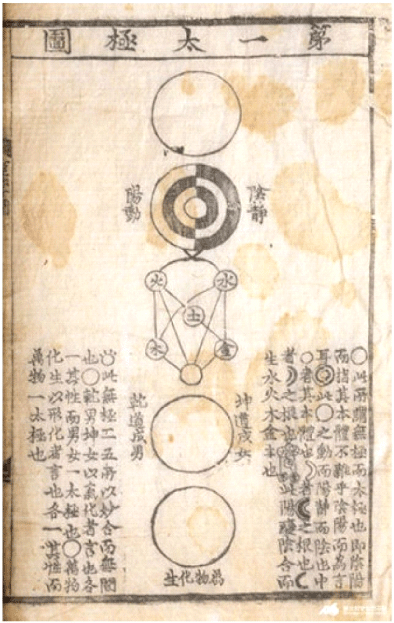 第一太極圖
陰靜
陽動
火 水
土
木 金
坤道成女
乾道成男
萬物化生
○此所謂無極而太極也即陰陽
而指其本體不雜乎陰陽而爲言
耳◎此○之動而陽靜而陰也中
○者其本體也☽者☾之根也☾
者☽之根也此陽變陰合而
生水火木金土也
此無極二五所以妙合而無間
也○乾男坤女以氣化者言也各
一其性而男女一太極也○萬物
化生以形化者言也各一其性而
萬物一太極也